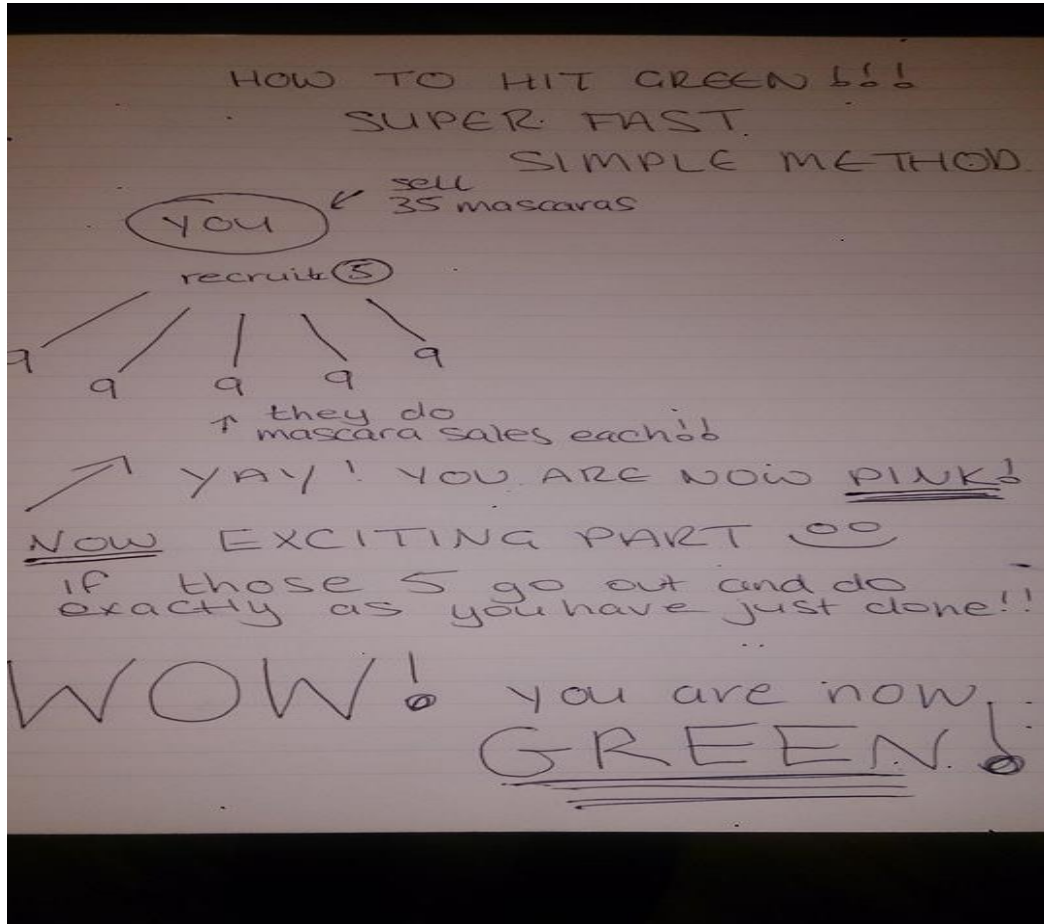 HOW TO HIT GREEN!!!
SUPER FAST.
SIMPLE METHOD
sell
35 mascaras
YOU
recruit 5
9 9 9 9 9
they do
mascara sales each!!
YAY! YOU ARE NOW PINK!
NOW EXCITING PART
if those 5 go out and do
exactly as you have just done!!
WOW! you are now
GREEN!